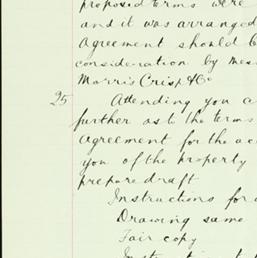 proposed terms were
and it was arranged
Agreement should b
consideration by Mes
Morris Crisp & Co
25 Attending you a
further as to the terms
Agreement for the ac
you of the property
prepare draft
Instructions for a
Drawing same
Fair copy